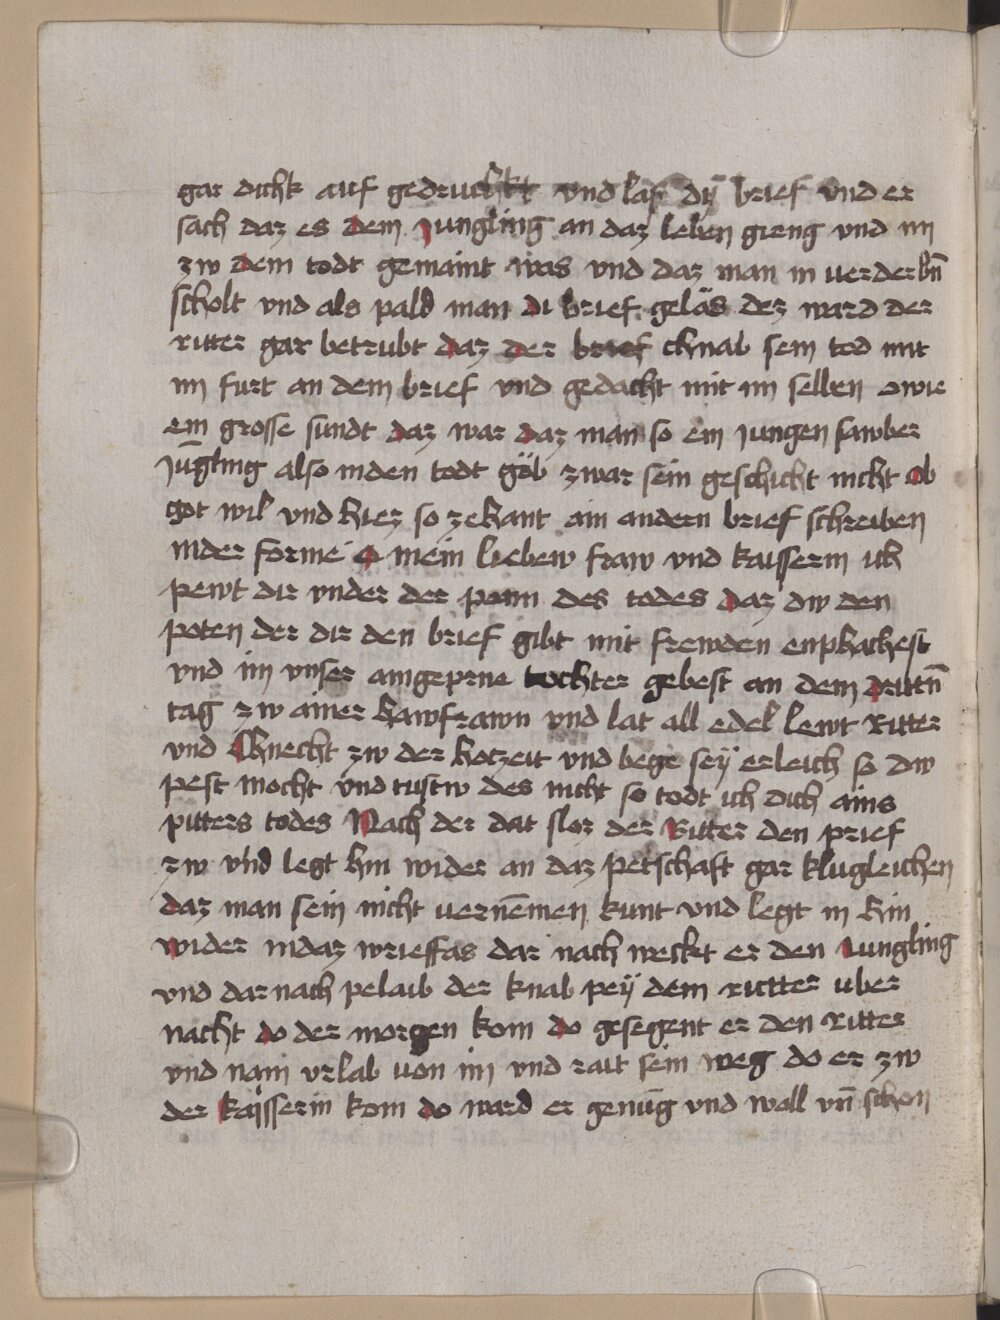 gar dichk auf gedruchkt vnd las dÿ brief vnd er
sach daz es dem Jungling an daz leben gieng vnd im
zw dem todt gemaint was vnd daz man in uerderbn̄
scholt vnd als pald man di brief geläs dez ward der
ritter gar betrubt daz der chnab sein tod mit
im furt an dem brief vnd gedacht mit im selben owie
ein grosse sundt daz war daz man so ein Jungen sawber
Jūgling also inden todt gäb zwar sein geschicht nicht ob
got wil vnd hiez so zehant ain andern brief schreiben
inder forme O mein liebew fraw vnd kaisserin ich
pewt dir vnder der penn des todes daz dw den
poten der dir den brief gibt mit frewden enphachest
vnd im vnser aingeprne tochter gebest an dem drittn̄
tag zw ainer hawfrawn vnd lat all edel lewt Ritter
vnd Chnecht zw der hotzeit vnd bege seÿ erleich so dw
pest mocht vnd tustw des nicht so todt ich dich ains
pitters todes Nach der dat sloz der Ritter den prief
zw vnd legt hin wider an daz petschaft gar klugleichen
daz man sein nicht uernēmen kunt vnd legt in hin
wider indaz wrieffas dar nach wecket er den Jungling
vnd dar nach pelaib der knab peÿ dem ritter uber
nacht do der morgen kom do gesegent er den Ritter
vnd nam vrlab von im vnd rait sein weg do er zw
der kaÿsserin kom do ward er genūg vnd woll vn̄ schon